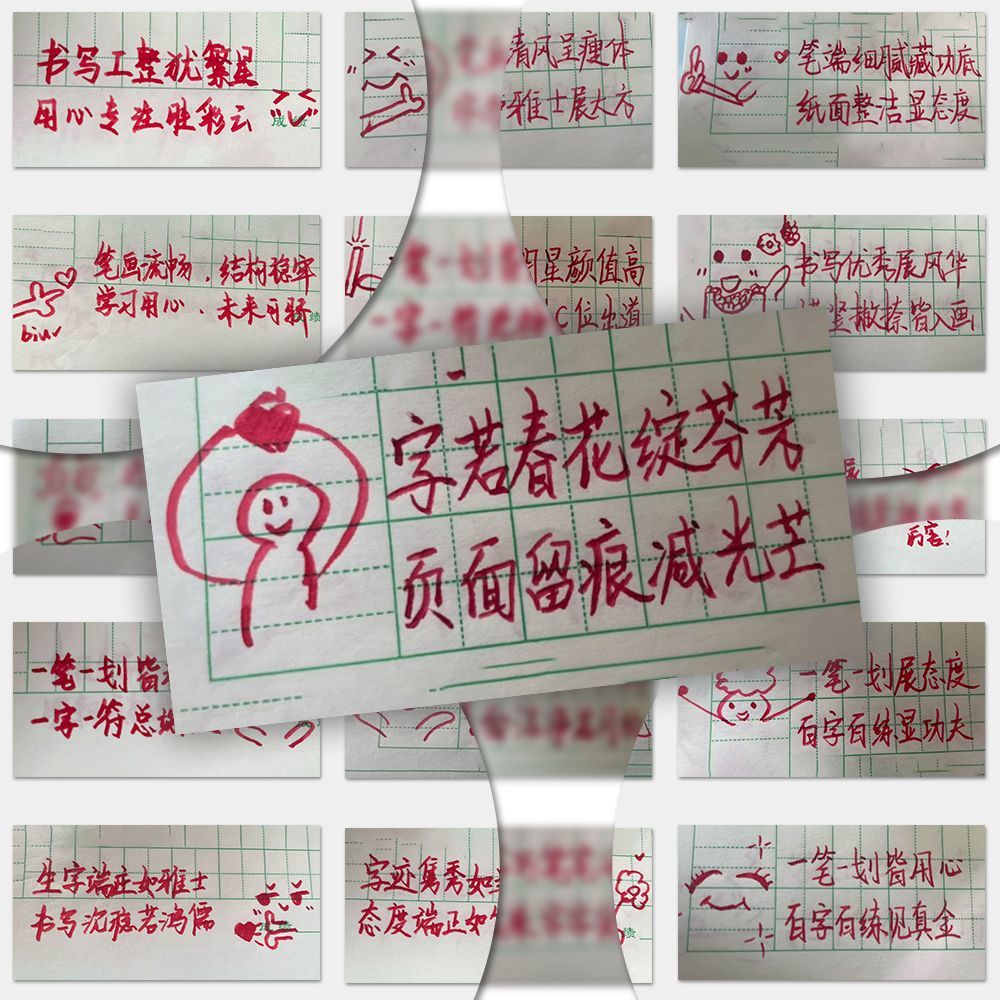 书写工整犹繁星
用心专注胜彩云
清风呈瘦体
雅士展大方
笔端细腻藏功底
纸面整洁显态度
笔画流畅，结构稳牢
学习用心，未来可骄
biu~
明星颜值高
C位出道
书写优秀展风华
竖撇捺皆入画
字若春花绽芬芳
页面留痕减光芒
厉害！
一笔一划皆
一字一符总
一笔一划展态度
百字百练显功夫
生字端正如雅士
书写沉稳若鸿儒
字迹隽秀如
态度端正如
一笔一划皆用心
百字百练见真金